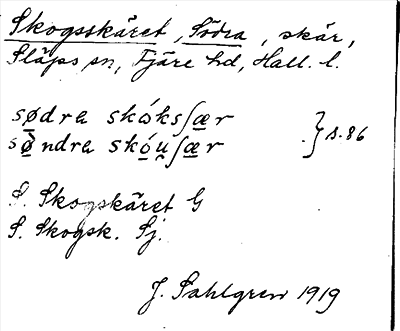 Skogsskäret, Södra, skär,
Släps sn, Fjäre hd, Hall. l.
sødra skóksʃær
sø̄ndra skóu̯ʃær } s. 86
S. Skogskäret G
S. Skogsk. Sj.
J. Sahlgren 1919